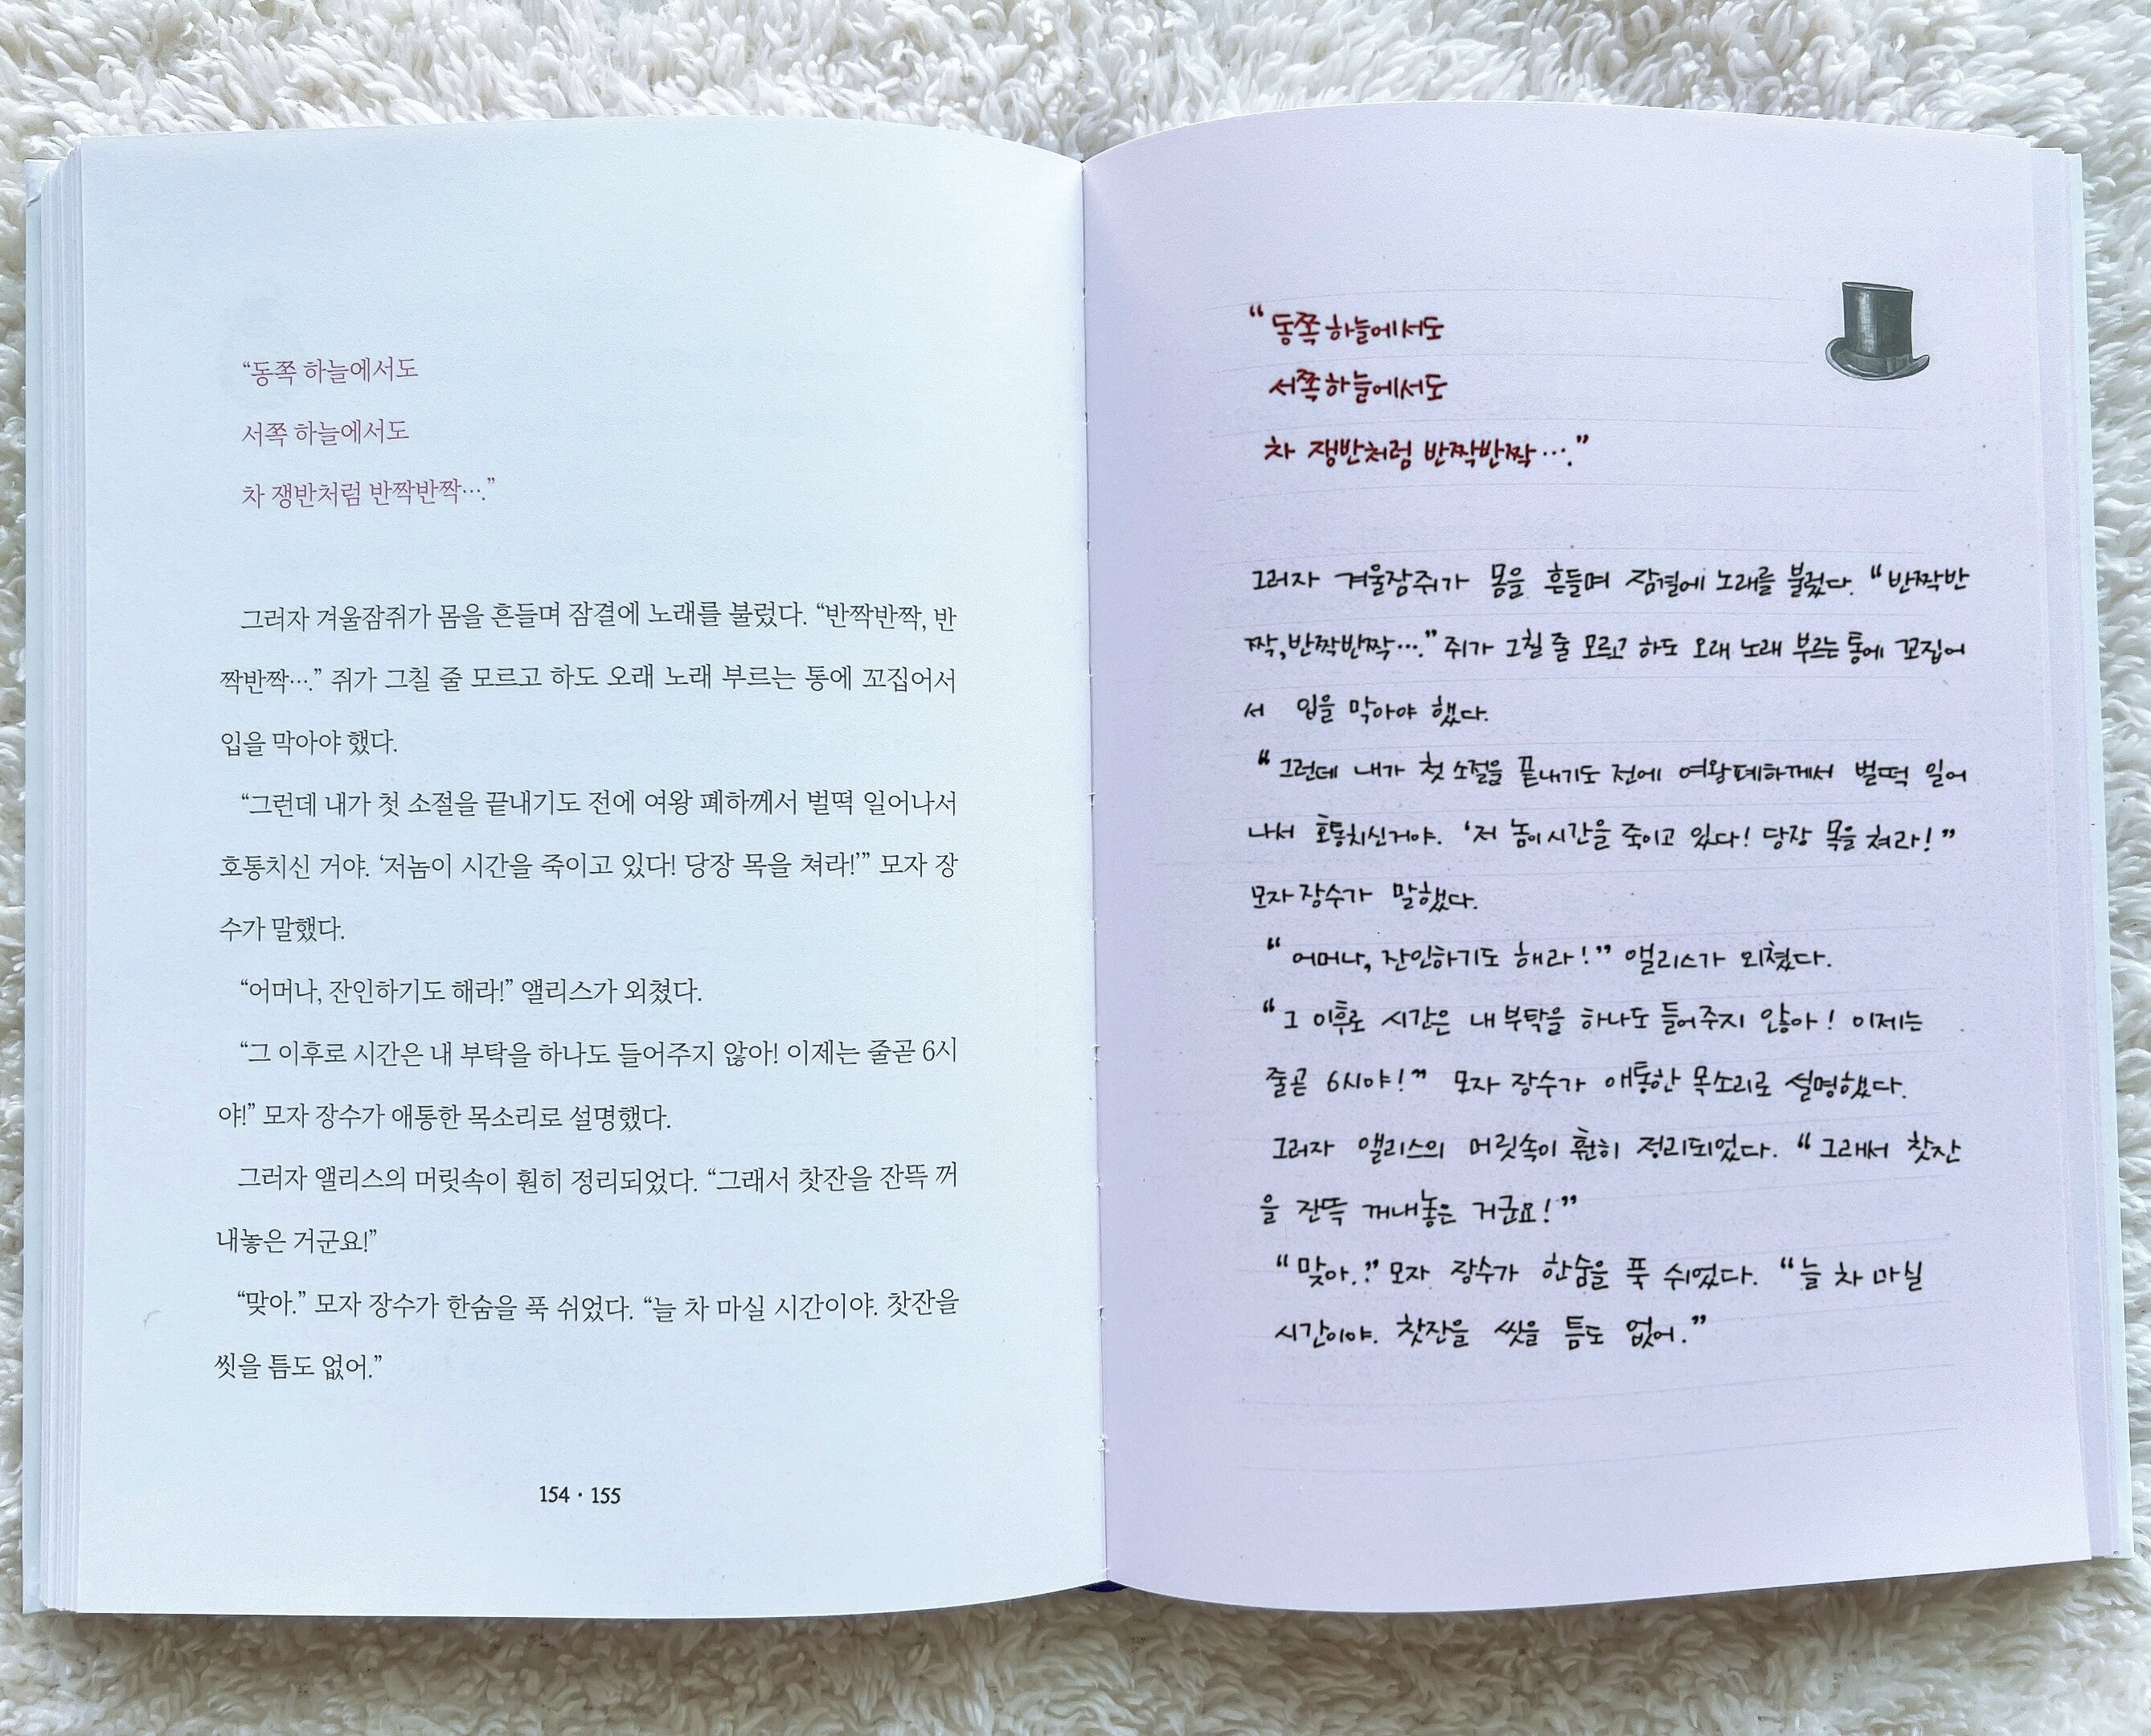 “동쪽 하늘에서도
서쪽 하늘에서도
차 쟁반처럼 반짝반짝….”
그러자 겨울잠쥐가 몸을 흔들며 잠결에 노래를 불렀다. “반짝반짝, 반
짝반짝….” 쥐가 그칠 줄 모르고 하도 오래 노래 부르는 통에 꼬집어서
입을 막아야 했다.
“그런데 내가 첫 소절을 끝내기도 전에 여왕 폐하께서 벌떡 일어나서
호통치신 거야. ‘저놈이 시간을 죽이고 있다! 당장 목을 쳐라!’” 모자 장
수가 말했다.
“어머나, 잔인하기도 해라!” 앨리스가 외쳤다.
“그 이후로 시간은 내 부탁을 하나도 들어주지 않아! 이제는 줄곧 6시
야!” 모자 장수가 애통한 목소리로 설명했다.
그러자 앨리스의 머릿속이 훤히 정리되었다. “그래서 찻잔을 잔뜩 꺼
내놓은 거군요!”
“맞아.” 모자 장수가 한숨을 푹 쉬었다. “늘 차 마실 시간이야. 찻잔을
씻을 틈도 없어.”
154 · 155
“동쪽 하늘에서도
서쪽 하늘에서도
차 쟁반처럼 반짝반짝….”
그러자 겨울잠쥐가 몸을 흔들며 잠결에 노래를 불렀다. “반짝반
짝, 반짝반짝….” 쥐가 그칠 줄 모르고 하도 오래 노래 부르는 통에 꼬집어
서 입을 막아야 했다.
“그런데 내가 첫 소절을 끝내기도 전에 여왕폐하께서 벌떡 일어
나서 호통치신거야. ‘저 놈이 시간을 죽이고 있다! 당장 목을 쳐라!”
모자 장수가 말했다.
“어머나, 잔인하기도 해라!” 앨리스가 외쳤다.
“그 이후로 시간은 내 부탁을 하나도 들어주지 않아! 이제는
줄곧 6시야!” 모자 장수가 애통한 목소리로 설명했다.
그러자 앨리스의 머릿속이 훤히 정리되었다. “그래서 찻잔
을 잔뜩 꺼내놓은 거군요!”
“맞아.” 모자 장수가 한숨을 푹 쉬었다. “늘 차 마실
시간이야. 찻잔을 씻을 틈도 없어.”